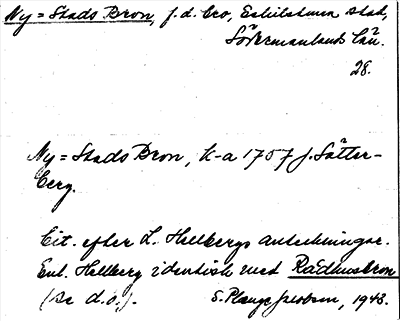 Ny=Stads Bron, f.d. bro, Eskilstuna stad,
Södermanlands län.
28.
Ny=Stads Bron, k-a 1757 J. Sätter-
berg.
Cit. efter L. Hellbergs anteckningar.
Enl. Hellberg identisk med Rådhusbron
(se d.o.). S. Plænge Jacobson, 1948.